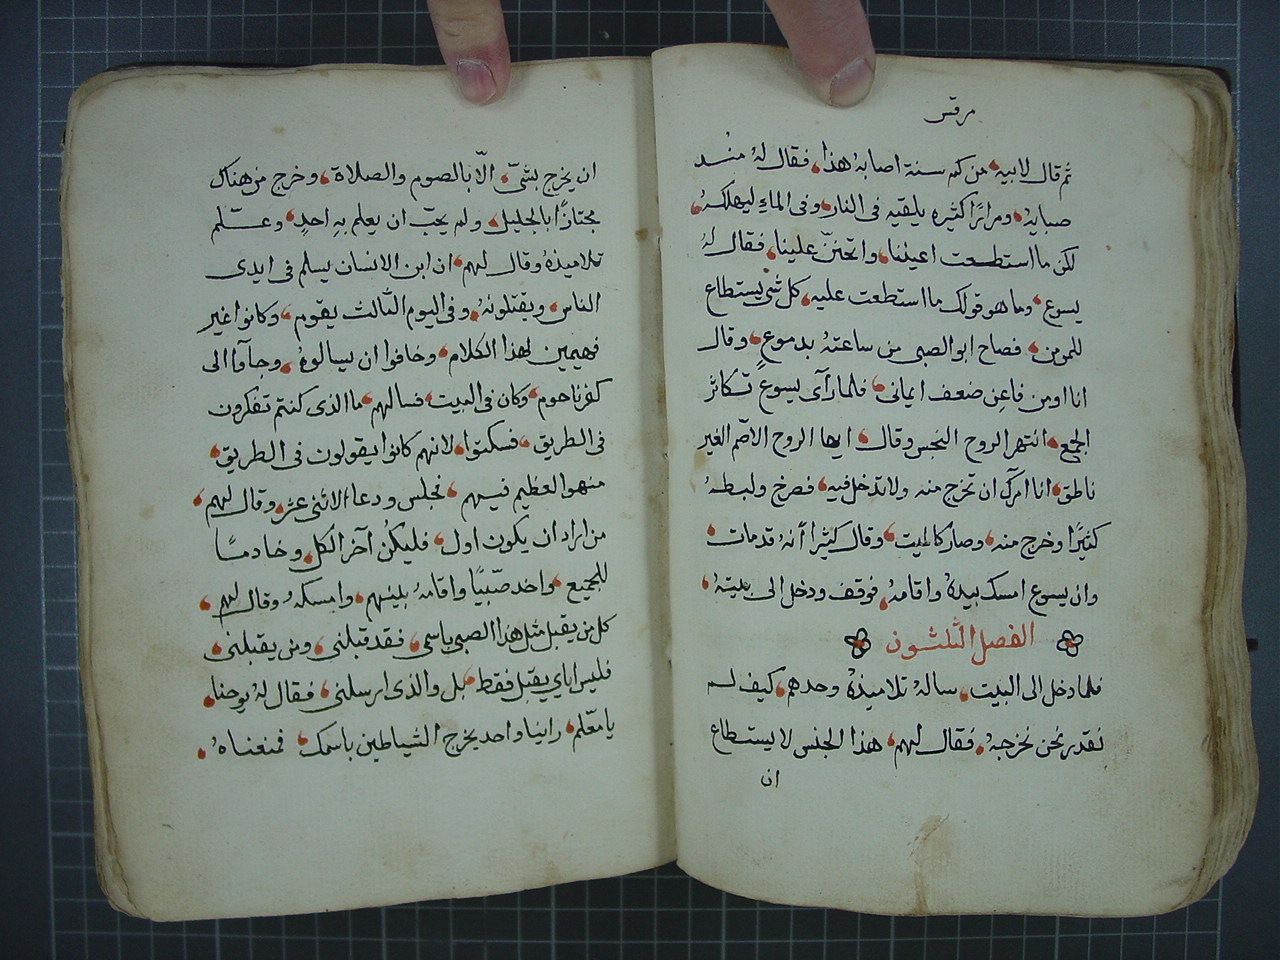 مرقس
ثم قال لابيه، من كم سنة اصابهُ هذا، فقال لهُ منــد
صبايهُ، ومرارًا كثيره يلقيه فى النار، وفى الماءِ ليهلكهُ،
لكن ما استطعت اعيننا، واتحننّ علينا، فقال لهُ
يسوع، وما هو قولك ما استطعت عليه، كل شى يستطاع
للمومن، فصاح ابو الصبى من ساعتهُ بدموعٍ، وقال
انا اومن فاعِن ضعف ايمانى، فلما رآى يسوع تكاثر
الجمع، انتهر الروح النجس وقال، ايها الروح الاصّم الغير
ناطق، انا آمركَ ان تخرج منه ولا تدخل فيه، فصرخ ولبطهُ
كثيرًا وخرج منه، وصار كالميت، وقال كثيرًا أنهُ قد مات،
وان يسوع امسك بيدهُ واقامهُ، فوقف ودخل الى بيتهُ،
الفصل الثلثون
فلما دخل الى البيت، سالهُ تلاميذهُ وحدهم، كيف لم
نقدر نحن نخرجهُ، فقال لهم، هذا الجنس لا يستطاع
ان
ان يخرج بشىّ، الّا بالصوم والصلاة، وخرج من هناك
مجتازًا بالجليل، ولم يحبّ ان يعلم بهِ احدٍ، وعــلّم
تلاميذهُ وقال لهم، ان ابن الانسان يسلم فى ايدى
الناس، ويقتلونهُ، وفى اليوم الثالث يقوم، وكانوا غير
فهيمين لهذا الكلام، وخافوا ان يسالوهُ، وجآوا الى
كفرناحوم، وكان فى البيت، فسالهم، ما الذى كنتم تفكرون
فى الطريق، فسكتوا، لانهم كانوا يقولون فى الطريق،
من هو العظيم فيهم، فجلس ودعا الاثنى عشر، وقال لهم،
من اراد ان يكون اول، فليكُن آخر الكل، وخادمـًا
للجميع، واخد صّبيًا واقامهُ بينهم، وامسكهُ وقال لهم،
كل من يقبل مثل هذا الصبى باسمى، فقد قبلنى، ومن يقبلنى،
فليس اياي يقبل فقط، بل والذى ارسلنى، فقال لهُ يوحنا،
يا معّلم، راينا واحد يخرج الشياطين باسمك، فمنعناهُ،